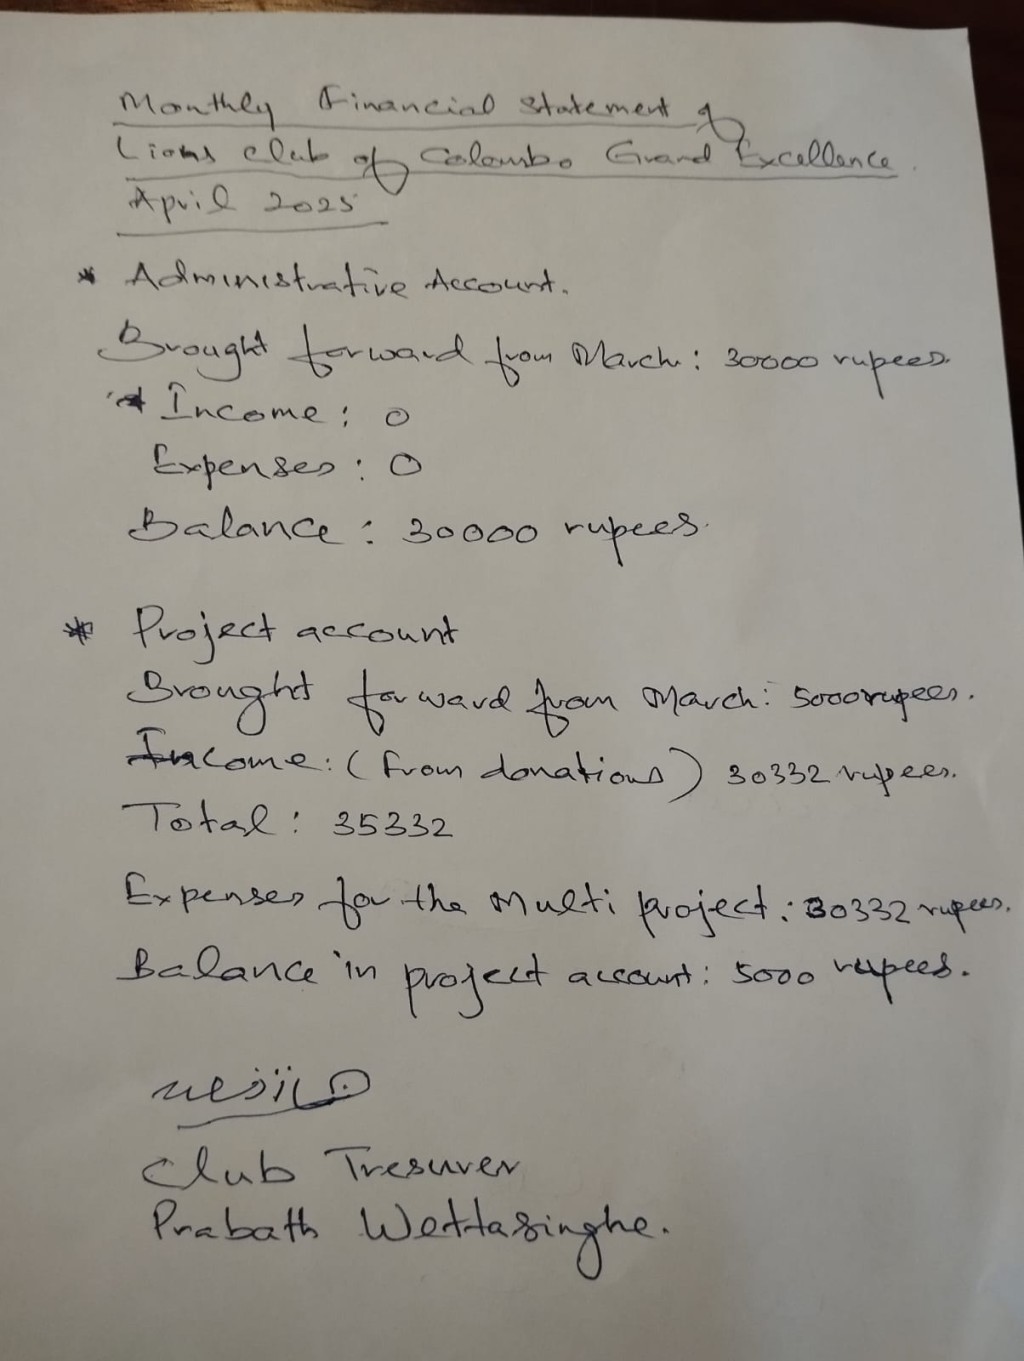 Monthly Financial Statement of
Lions Club of Colombo Grand Excellence.
April 2025
* Administrative Account.
Brought forward from March: 30000 rupees.
Income: 0
Expenses: 0
Balance: 30000 rupees.
* Project account
Brought forward from March: 5000 rupees.
Income: (from donations) 30332 rupees.
Total: 35332
Expenses for the Multi project: 30332 rupees.
Balance in project account: 5000 rupees.
Club Tresurer
Prabath Wettasinghe.